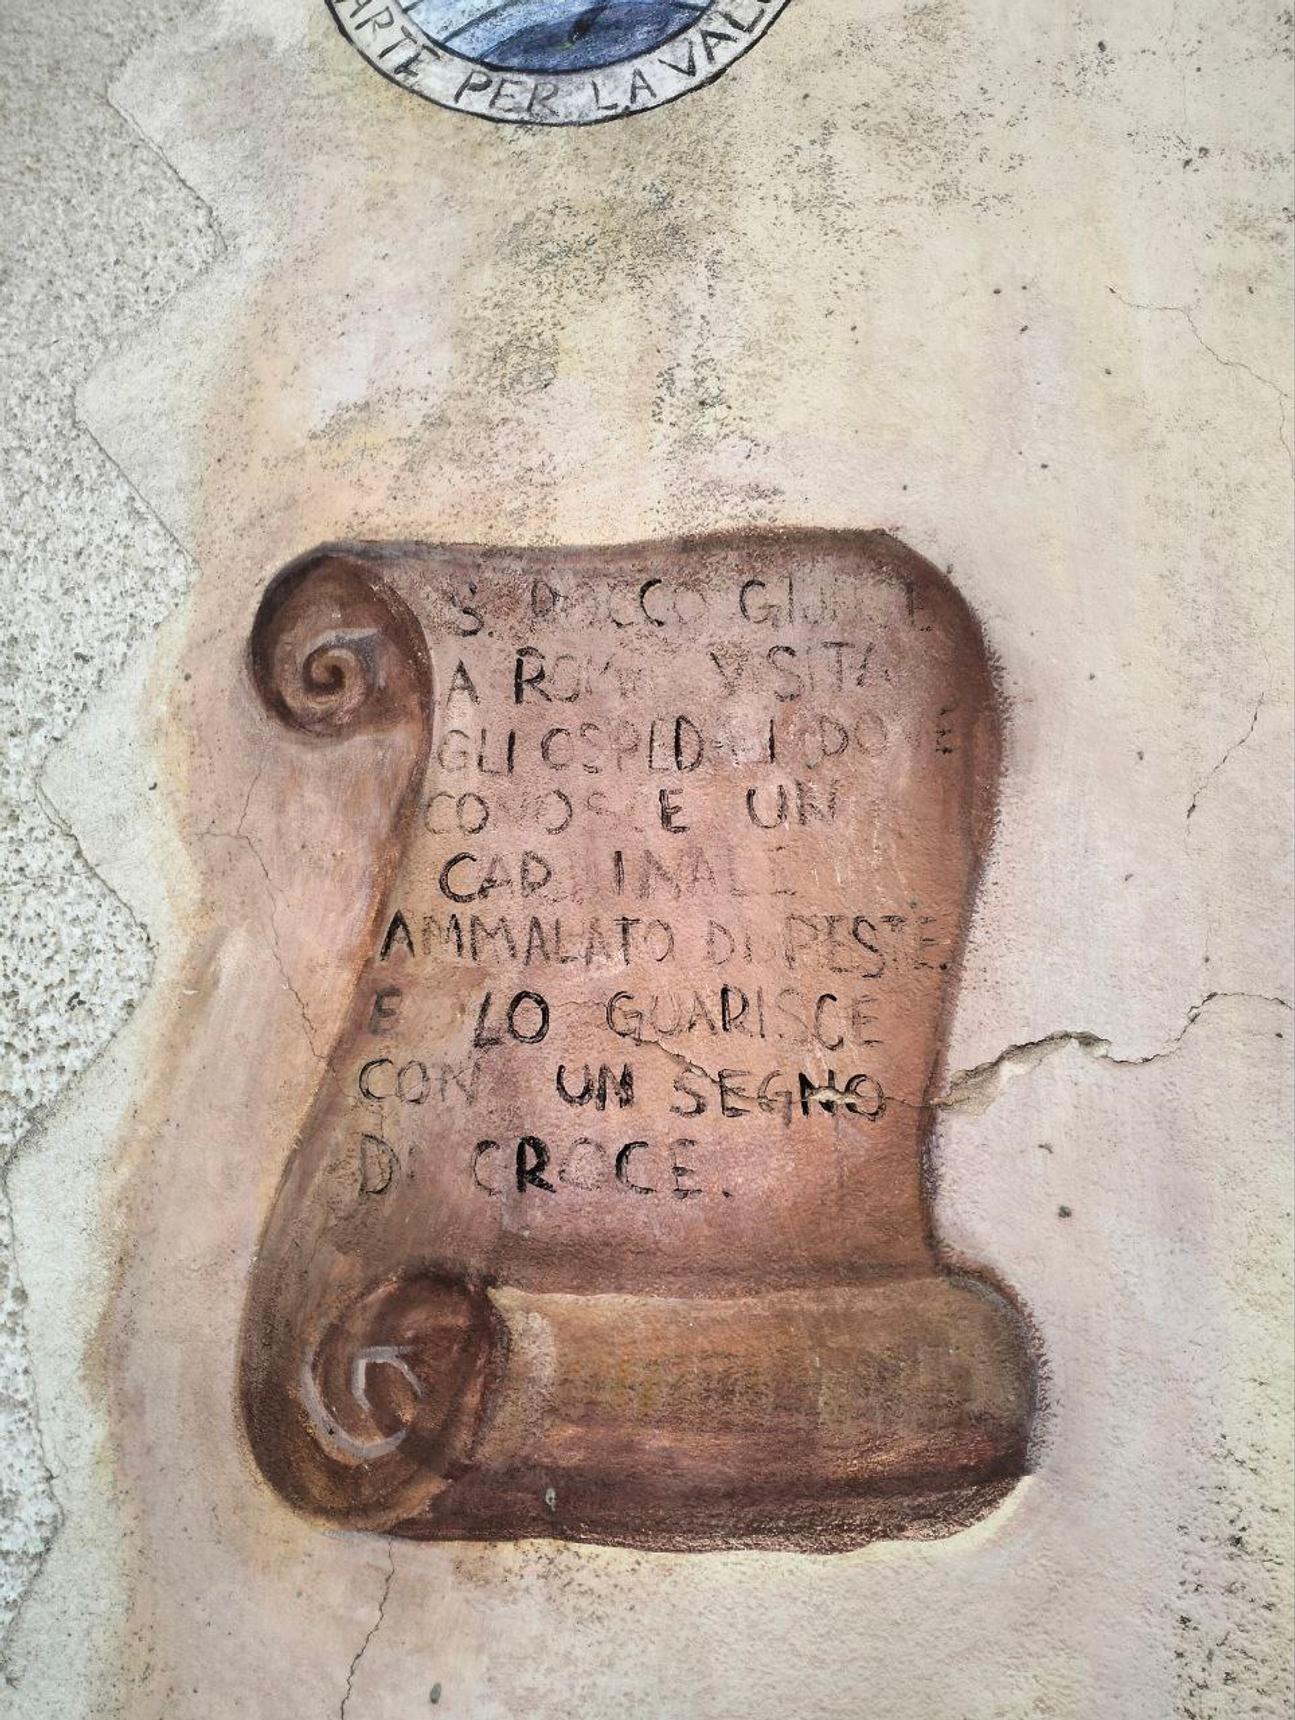 ARTE PER LA VAL
S. ROCCO GIUNTE
A ROMA VISITA
GLI OSPEDALI DOVE
CONOSCE UN
CARDINALE
AMMALATO DI PESTE.
E LO GUARISCE
CON UN SEGNO
DI CROCE.